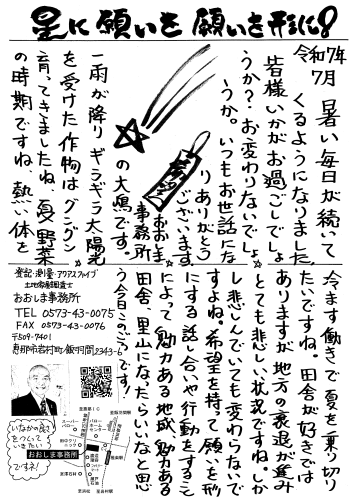 星に願いを 願いを形に!
令和7年
7月 暑い毎日が続いて
くるようになりました
皆様いかがお過ごしでしょ
うか?お変わりないでしょ
うか。いつもお世話にな
りありがとう
ございます。
おおしま
事務所
の大嶋です。
希望
一雨が降りギラギラ太陽光
を受けた作物はグングン
育ってきましたね、夏野菜
の時期ですね、熱い体を
冷ます働きで夏を乗り切り
たいですね。田舎が好きでは
ありますが地方の衰退が進み
とても悲しい状況ですね。しか
し悲しんでいても変わらないで
すよね。希望を持って願いを形
にする話し合いや行動をすること
によって魅力ある地域、魅力ある
田舎、里山になったらいいなと思
う今日このごろです!
登記・測量 アクアスファイブ
土地家屋調査士
おおしま事務所
TEL 0573-43-0075
FAX 0573-43-0076
〒509-7401
恵那市岩村町飯羽間2343-6
いなかの良さ
をつくして
いきたい
ですネ!
おおしま事務所